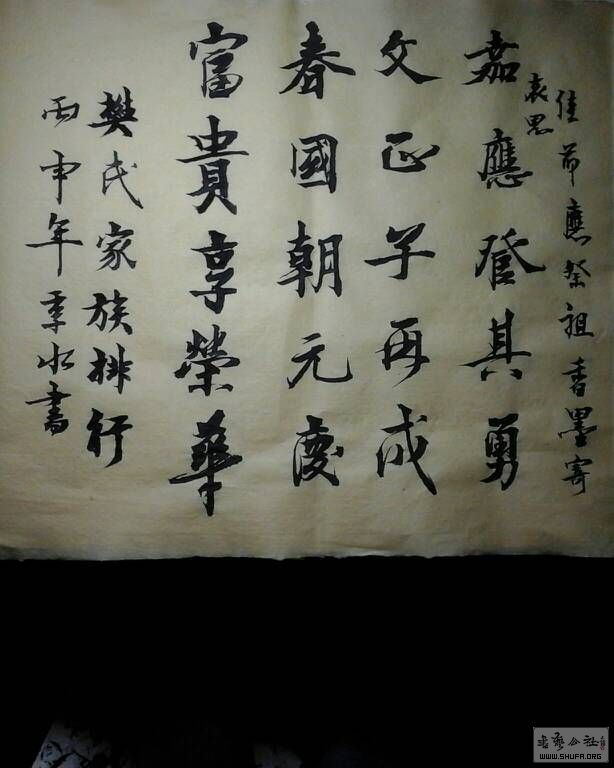 佳節應祭祖書墨寄
哀思
嘉應登其勇
文正子再成
春國朝元慶
富貴享榮華
樊氏家族排行
丙申年季水書
书艺公社
WWW.SHUFA.ORG